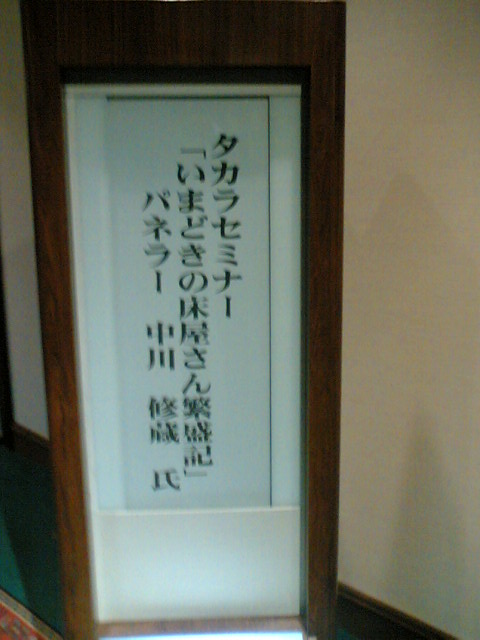 タカラセミナー
「いまどきの床屋さん繁盛記」
パネラー 中川 修蔵 氏